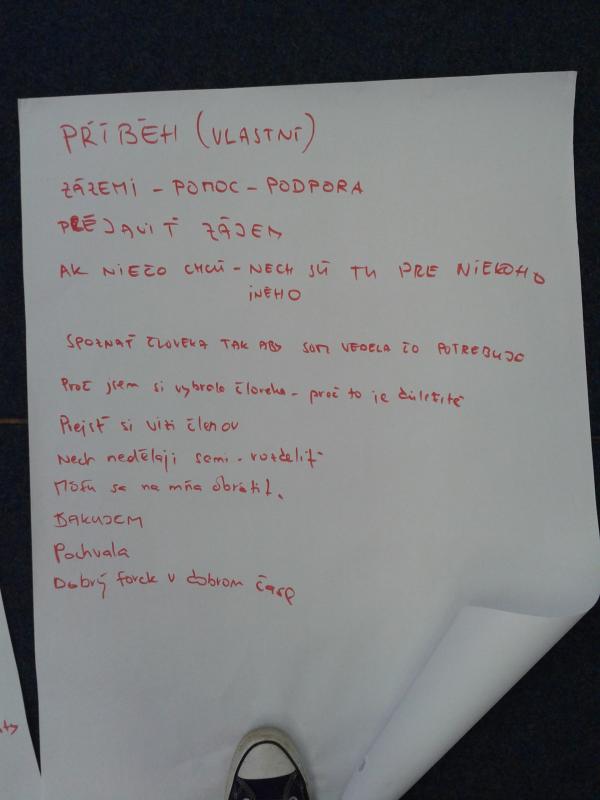 PŘÍBĚH (VLASTNÍ)
ZÁZEMÍ - POMOC - PODPORA
PREJAVIŤ ZÁJEM
AK NIEČO CHCÚ - NECH SÚ TU PRE NIEKOHO
INÉHO
SPOZNAŤ ČLOVEKA TAK ABY SOM VEDELA ČO POTREBUJE
Proč jsem si vybrala človeka - proč to je důležité
Prejsť si viži členov
Nech nedělaji sami - rozdeliť
Môžu sa na mňa obrátiť.
ĎAKUJEM
Pochvala
Dobrý forek v dobrom čase